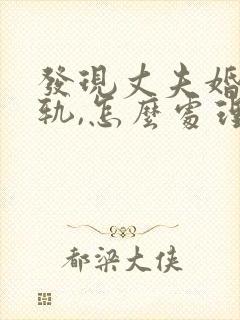 發現丈夫婚
軌,怎麼處理
都梁大侠